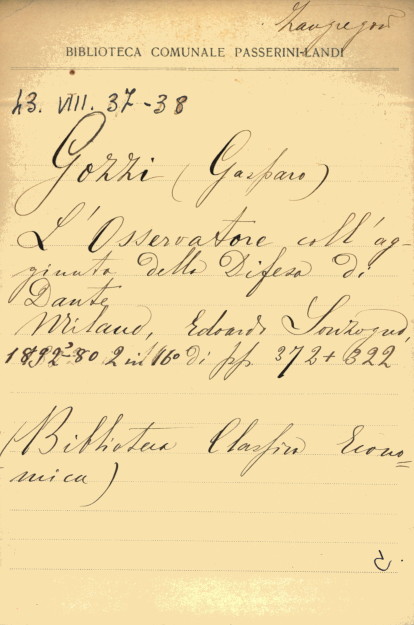 BIBLIOTECA COMUNALE PASSERINI-LANDI
43. VIII. 37-38
Gozzi (Gasparo)
L'Osservatore coll'ag-
giunta della Difesa di
Dante
Milano, Edoardo Sonzogno,
80 2 in 16º di pp. 372 + 322
(Biblioteca Classica Econo=
mica)